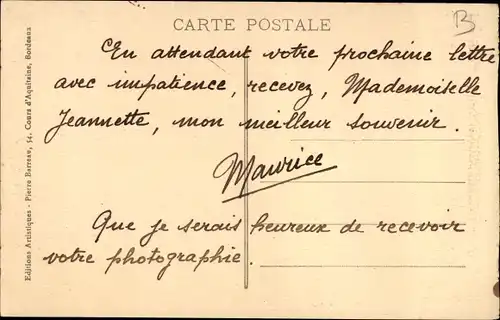 CARTE POSTALE
B
En attendant votre prochaine lettre
avec impatience, recevez, Mademoiselle
Jeannette, mon meilleur souvenir.
Maurice
Que je serais heureux de recevoir
votre photographie.
Editions Artistiques - Pierre Barreau, 54, Cours d'Aquitaine, Bordeaux